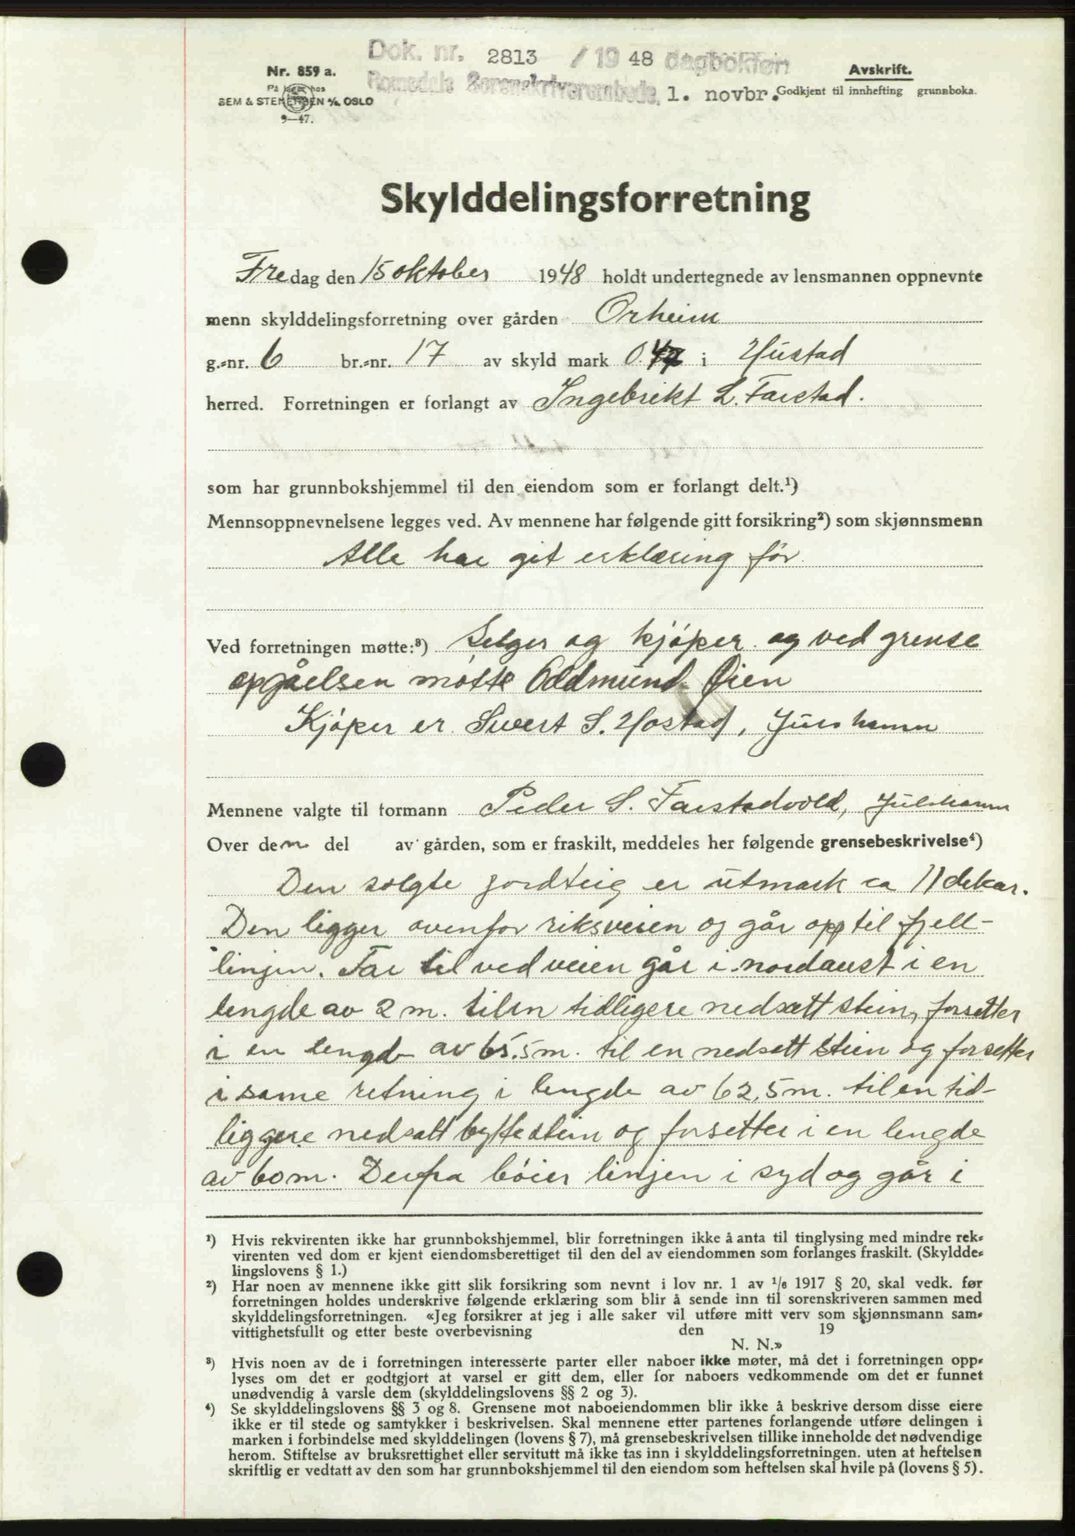 Dok. nr. 2813 / 19 48 dagboken
Romsdals Sorenskriverembede, 1. novbr.
Nr. 859 a.
På lager hos
SEM & STENERSEN A/S, OSLO
9—47.
Avskrift.
Godkjent til innhefting grunnboka.
Skylddelingsforretning
Fredag den 15 oktober 1948 holdt undertegnede av lensmannen oppnevnte
menn skylddelingsforretning over gården Orheim
g.-nr. 6 br.-nr. 17 av skyld mark 0.47 i Hustad
herred. Forretningen er forlangt av Ingebrikt L. Farstad.
som har grunnbokshjemmel til den eiendom som er forlangt delt.¹)
Mennsoppnevnelsene legges ved. Av mennene har følgende gitt forsikring²) som skjønnsmenn
Alle har git erklæring før
Ved forretningen møtte:³) Selger og kjøper og ved grense
opgåelsen møtte Oddmund Øien
Kjøper er Sivert S. Hostad, Julshamn
Mennene valgte til formann Peder S. Farstadvold, Julshamn
Over den del av gården, som er fraskilt, meddeles her følgende grensebeskrivelse⁴)
Den solgte jordteig er utmark ca 11 dekar.
Den ligger ovenfor riksveien og går opp til fjell-
linjen. Tar til ved veien går i nordaust i en
lengde av 2 m. til en tidligere nedsatt stein, forsetter
i en lengde av 65.5 m. til en nedsatt stien og forsetter
i same retning i lengde av 62,5 m. til en tid-
liggere nedsatt byttestein og forsetter i en lengde
av 60 m. Derfra bøier linjen i syd og går i
¹) Hvis rekvirenten ikke har grunnbokshjemmel, blir forretningen ikke å anta til tinglysing med mindre rek-
virenten ved dom er kjent eiendomsberettiget til den del av eiendommen som forlanges fraskilt. (Skyldde-
lingslovens § 1.)
²) Har noen av mennene ikke gitt slik forsikring som nevnt i lov nr. 1 av ¹/₆ 1917 § 20, skal vedk. før
forretningen holdes underskrive følgende erklæring som blir å sende inn til sorenskriveren sammen med
skylddelingsforretningen. «Jeg forsikrer at jeg i alle saker vil utføre mitt verv som skjønnsmann sam-
vittighetsfullt og etter beste overbevisning den 19
N. N.»
³) Hvis noen av de i forretningen interesserte parter eller naboer ikke møter, må det i forretningen opp-
lyses om det er godtgjort at varsel er gitt dem, eller for naboers vedkommende om det er funnet
unødvendig å varsle dem (skylddelingslovens §§ 2 og 3).
⁴) Se skylddelingslovens §§ 3 og 8. Grensene mot naboeiendommen blir ikke å beskrive dersom disse eiere
ikke er til stede og samtykker i beskrivelsen. Skal mennene etter partenes forlangende utføre delingen i
marken i forbindelse med skylddelingen (lovens § 7), må grensebeskrivelsen tillike inneholde det nødvendige
herom. Stiftelse av bruksrettighet eller servitutt må ikke tas inn i skylddelingsforretningen. uten at heftelsen
skriftlig er vedtatt av den som har grunnbokshjemmel til den eiendom som heftelsen skal hvile på (lovens § 5).